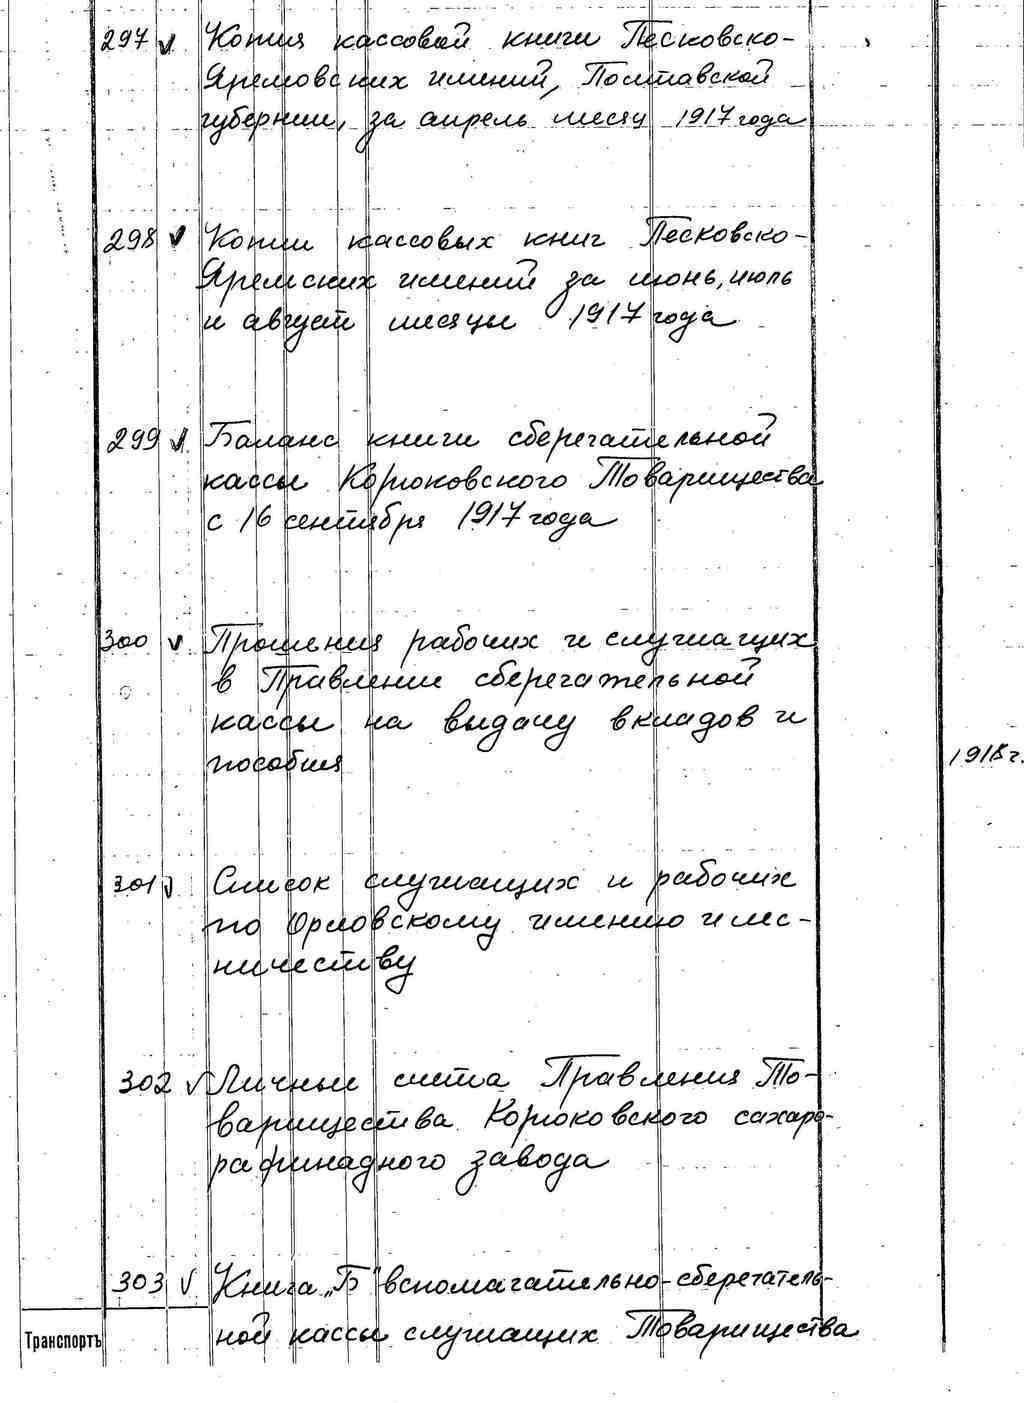 297 v Копия кассовой книги Песковско-
Яремовских имений, Полтавской
губернии, за апрель месяц 1917 года
298 v Копии кассовых книг Песковско-
Яремских имений за июнь, июль
и август месяцы 1917 года
299 v Баланс книги сберегательной
кассы Корюковского Товарищества
с 16 сентября 1917 года
300 v Прошения рабочих и служащих
в Правление сберегательной
кассы на выдачу вкладов и
пособия
1918 г.
301 v Список служащих и рабочих
по Орловскому имению и лес-
ничеству
302 v Личные счета Правления То-
варищества Корюковского сахаро-
рафинадного завода
303 v Книга „Б" вспомагательно-сберегатель-
ной кассы служащих Товарищества
Транспортъ